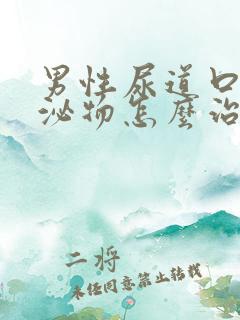 男性尿道口
泌物怎麼治
二將
未经同意禁止转载